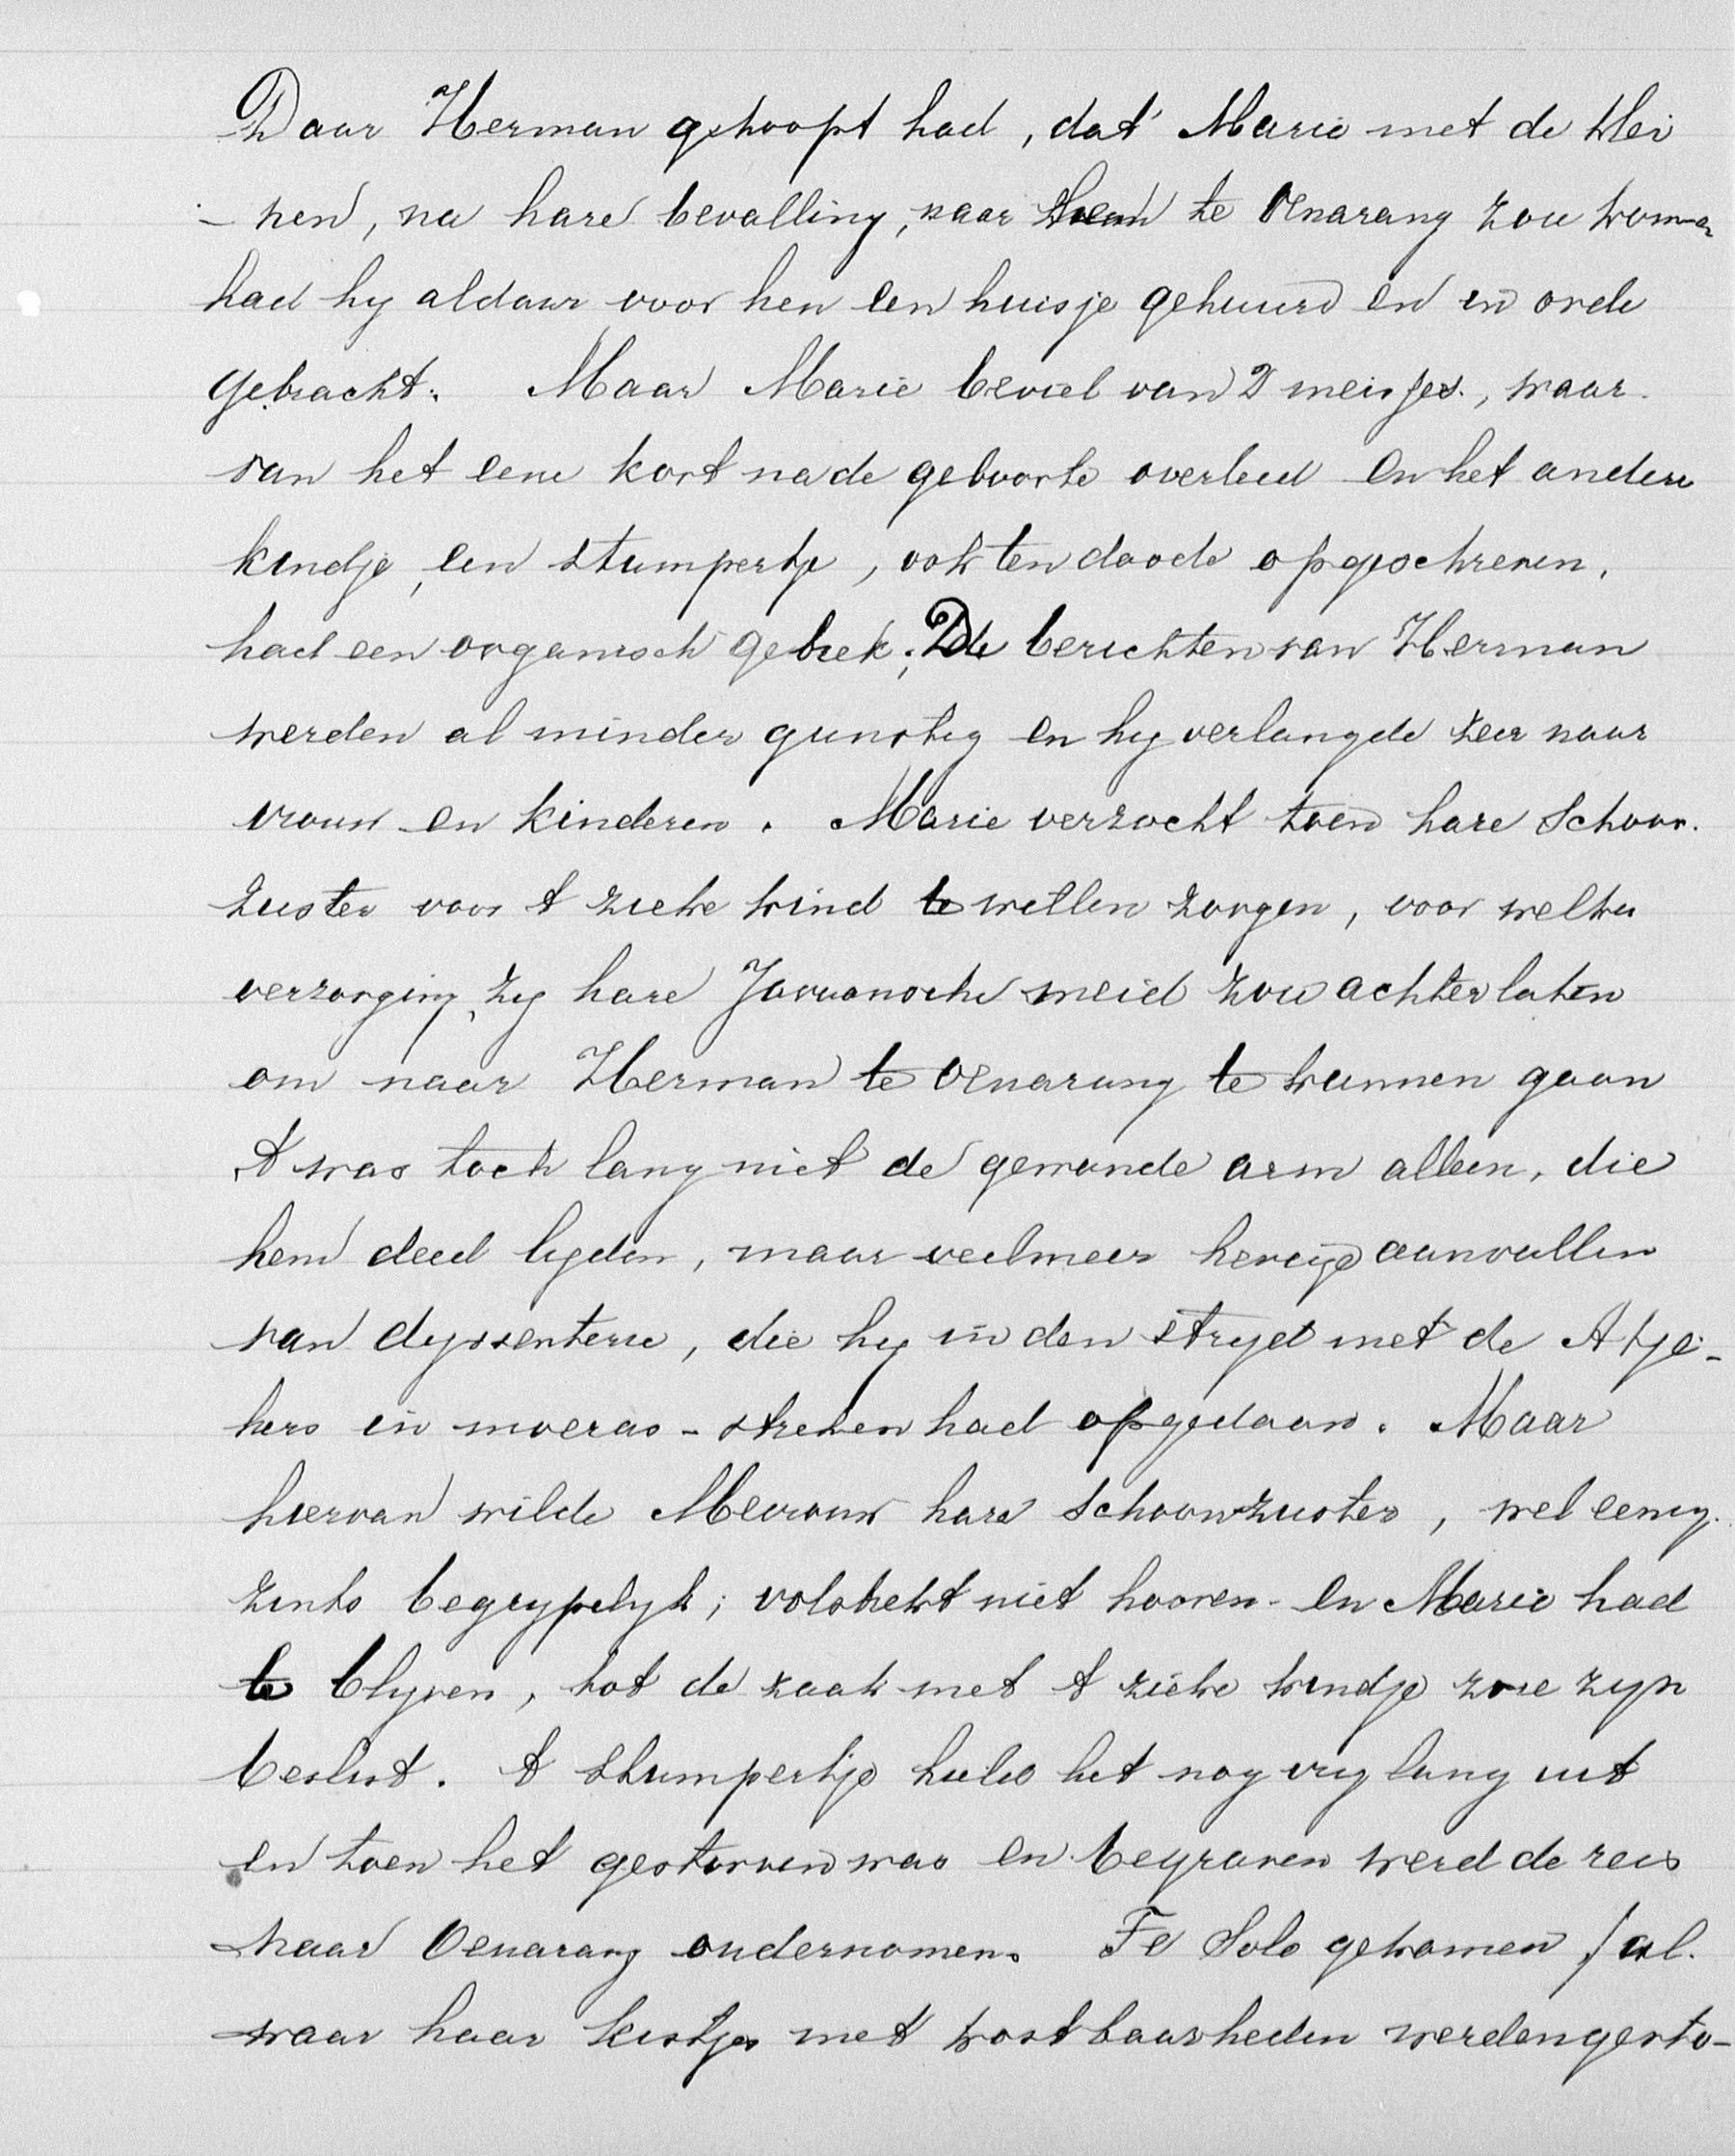 Daar Herman gehoopt had, dat Marie met de klei
- nen, na hare bevalling, naar hem te Oenarang zou komen
had hy aldaar voor hen een huisje gehuurd en in orde
gebracht. Maar Marie beviel van 2 meisjes, waar-
van het eene kort na de geboorte overleed en het andere
kindje, een stumpertje, ook ten doode opgeschreven,
had een organisch gebrek; De berichten van Herman
werden al minder gunstig en hy verlangde zeer naar
vrouw en kinderen. Marie verzocht toen hare Schoon-
zuster voor 't zieke kind te willen zorgen, voor welke
verzorging, zy hare Javaansche meid zou achterlaten
om naar Herman te Oenarang te kunnen gaan
't was toch lang niet de gewonde arm alleen, die
hem deed lyden, maar veelmeer hevige aanvallen
van dyssenterie, die hy in den stryd met de Atje-
hers in moeras-streken had opgedaan. Maar
hiervan wilde Mevrouw hare Schoonzuster, wel eenig-
zints begrypelyk; volstrekt niet hooren - en Marie had
te blyven, tot de zaak met 't zieke kindje zou zyn
beslist. 't Stumpertje hield het nog vry lang uit
en toen het gestorven was en begraven werd de reis
naar Oenarang ondernomen. Te Solo gekomen / al-
waar haar kistjes met kostbaarheden werden gesto-